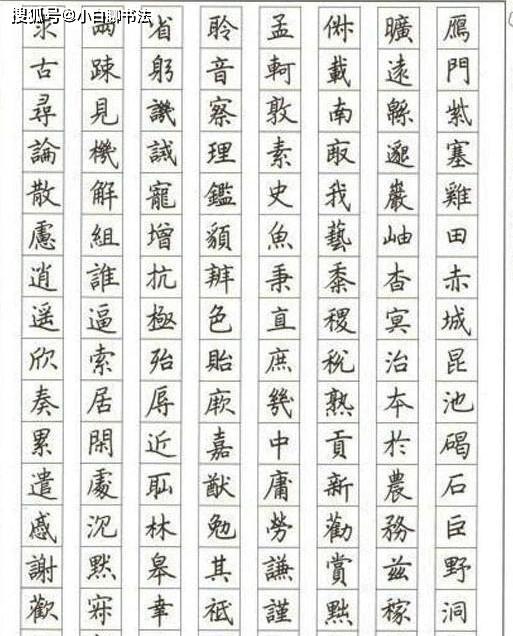 搜狐号@小白聊书法
鴈門紫塞雞田赤城昆池碣石巨野洞
曠遠緜邈巖岫杳冥治本於農務茲稼
俶載南畝我藝黍稷稅熟貢新勸賞黜
孟軻敦素史魚秉直庶幾中庸勞謙謹
聆音察理鑑貌辨色貽厥嘉猷勉其祗
省躬譏誡寵增抗極殆辱近恥林皋幸
兩疎見機解組誰逼索居閑處沉默寂
求古尋論散慮逍遥欣奏累遣慼謝歡